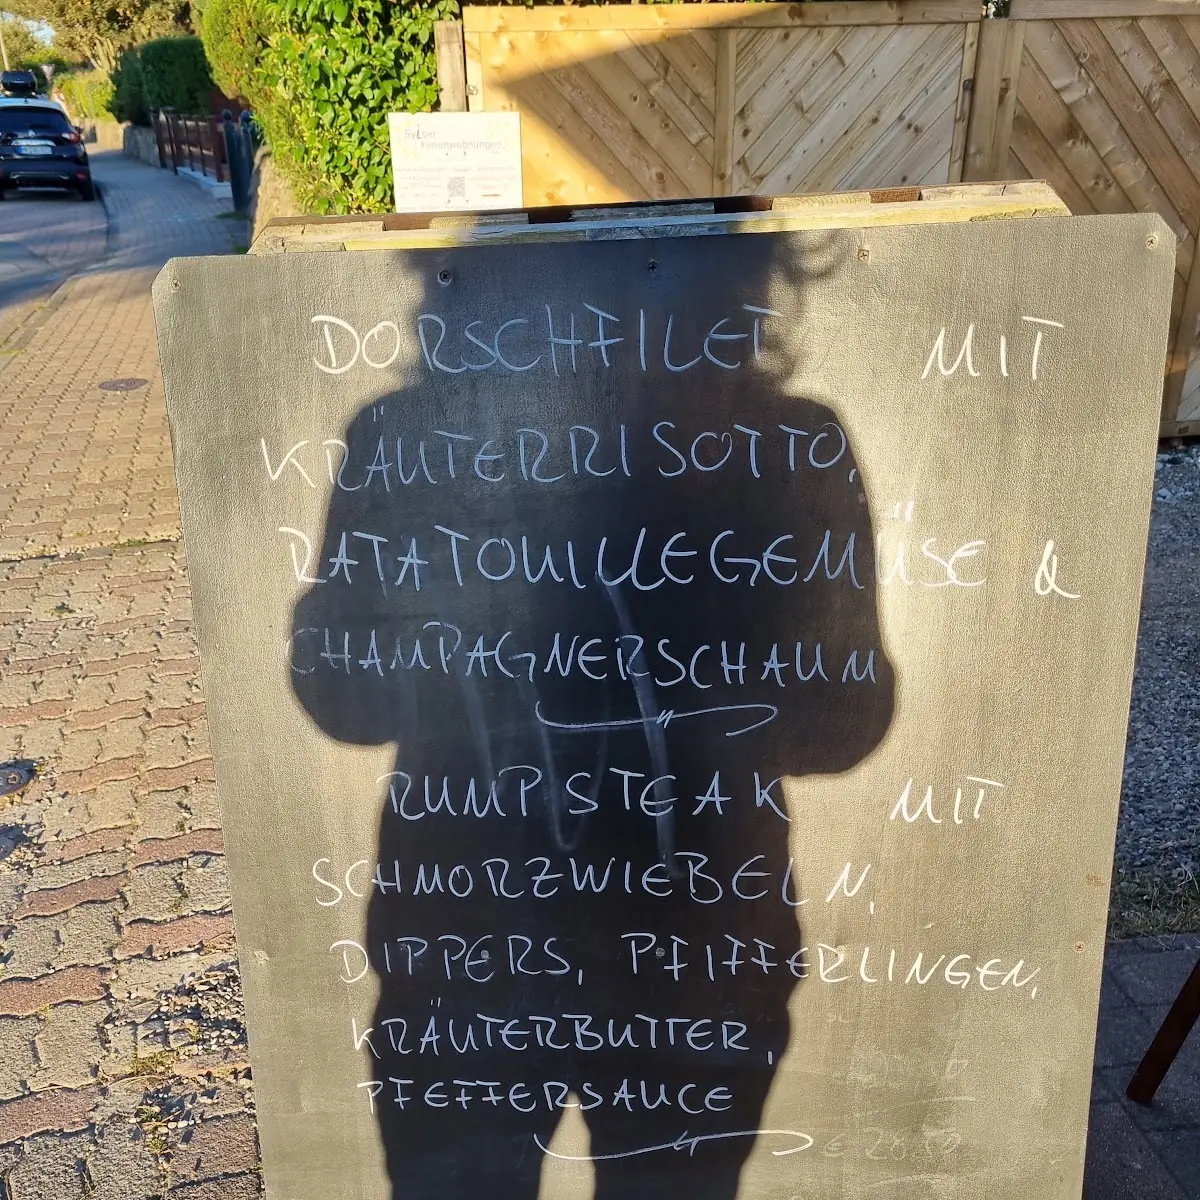 Sylter
Ferienwohnungen
DORSCHFILET MIT
KRÄUTERRISOTTO,
RATATOUILLEGEMÜSE &
CHAMPAGNERSCHAUM
RUMPSTEAK MIT
SCHMORZWIEBELN,
DIPPERS, PFIFFERLINGEN,
KRÄUTERBUTTER,
PFEFFERSAUCE